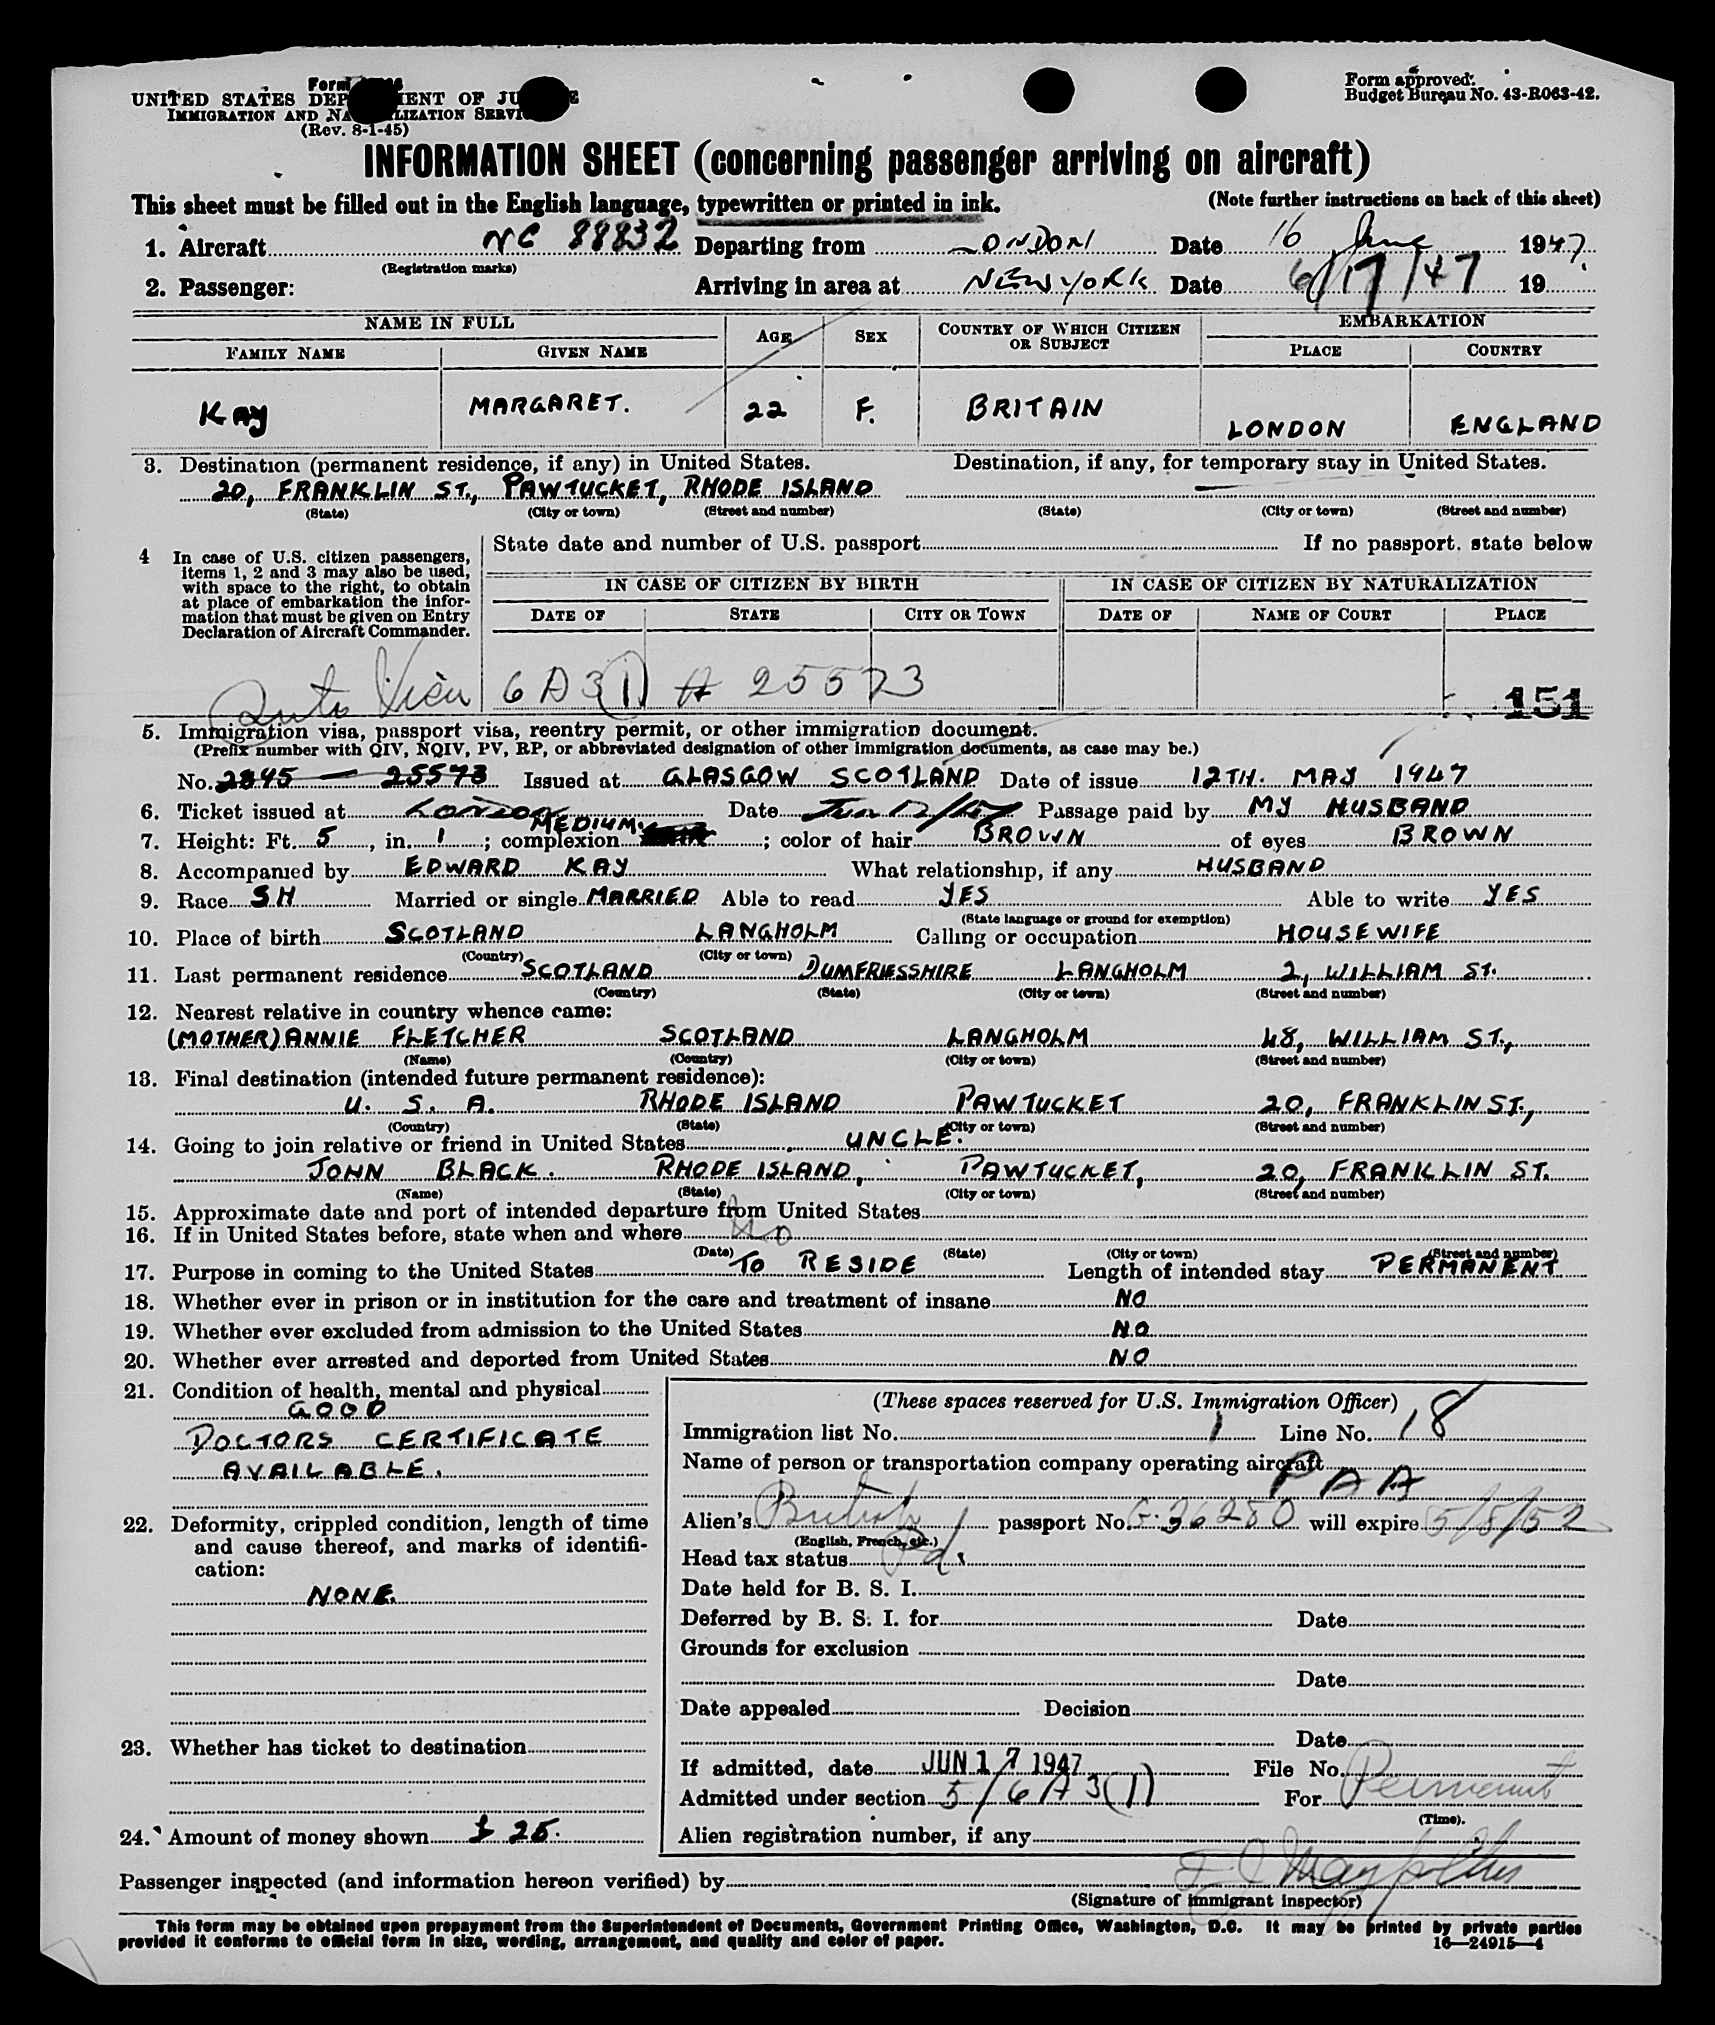 Form
UNITED STATES DEPARTMENT OF JUSTICE
IMMIGRATION AND NATURALIZATION SERVICE
(Rev. 8-1-45)
Form approved.
Budget Bureau No. 43-R063-42.
INFORMATION SHEET (concerning passenger arriving on aircraft)
This sheet must be filled out in the English language, typewritten or printed in ink. (Note further instructions on back of this sheet)
1. Aircraft NC 88832 Departing from LONDON Date 16 June 1947
(Registration marks)
2. Passenger: Arriving in area at NEW YORK Date 6/17/47 19
NAME IN FULL AGE SEX COUNTRY OF WHICH CITIZEN OR SUBJECT EMBARKATION
FAMILY NAME GIVEN NAME PLACE COUNTRY
KAY MARGARET. 22 F. BRITAIN LONDON ENGLAND
3. Destination (permanent residence, if any) in United States. Destination, if any, for temporary stay in United States.
20, FRANKLIN ST., PAWTUCKET, RHODE ISLAND
(State) (City or town) (Street and number) (State) (City or town) (Street and number)
4 In case of U.S. citizen passengers, items 1, 2 and 3 may also be used, with space to the right, to obtain at place of embarkation the information that must be given on Entry Declaration of Aircraft Commander.
State date and number of U.S. passport If no passport. state below
IN CASE OF CITIZEN BY BIRTH IN CASE OF CITIZEN BY NATURALIZATION
DATE OF STATE CITY OR TOWN DATE OF NAME OF COURT PLACE
6A3(1) # 25573
151
5. Immigration visa, passport visa, reentry permit, or other immigration document.
(Prefix number with QIV, NQIV, PV, RP, or abbreviated designation of other immigration documents, as case may be.)
No. 2845 — 25573 Issued at GLASGOW SCOTLAND Date of issue 12TH. MAY 1947
6. Ticket issued at London Date Jun 12/47 Passage paid by MY HUSBAND
7. Height: Ft. 5, in. 1; complexion MEDIUM.; color of hair BROWN of eyes BROWN
8. Accompanied by EDWARD KAY What relationship, if any HUSBAND
9. Race SH Married or single MARRIED Able to read YES Able to write YES
(State language or ground for exemption)
10. Place of birth SCOTLAND LANGHOLM Calling or occupation HOUSEWIFE
(Country) (City or town)
11. Last permanent residence SCOTLAND DUMFRIESSHIRE LANGHOLM 2, WILLIAM ST.
(Country) (State) (City or town) (Street and number)
12. Nearest relative in country whence came:
(MOTHER) ANNIE FLETCHER SCOTLAND LANGHOLM 48, WILLIAM ST.,
(Name) (Country) (City or town) (Street and number)
13. Final destination (intended future permanent residence):
U. S. A. RHODE ISLAND PAWTUCKET 20, FRANKLIN ST.,
(Country) (State) (City or town) (Street and number)
14. Going to join relative or friend in United States UNCLE.
JOHN BLACK. RHODE ISLAND, PAWTUCKET, 20, FRANKLIN ST.
(Name) (State) (City or town) (Street and number)
15. Approximate date and port of intended departure from United States
16. If in United States before, state when and where No
(Date) (State) (City or town) (Street and number)
17. Purpose in coming to the United States TO RESIDE Length of intended stay PERMANENT
18. Whether ever in prison or in institution for the care and treatment of insane NO
19. Whether ever excluded from admission to the United States NO
20. Whether ever arrested and deported from United States NO
21. Condition of health, mental and physical
GOOD
DOCTORS CERTIFICATE
AVAILABLE.
22. Deformity, crippled condition, length of time and cause thereof, and marks of identification:
NONE.
23. Whether has ticket to destination
24. Amount of money shown £ 25.
(These spaces reserved for U.S. Immigration Officer)
Immigration list No. 1 Line No. 18
Name of person or transportation company operating aircraft
PAA
Alien's British passport No. G.36280 will expire 5/8/52
(English, French, etc.)
Head tax status Pd.
Date held for B. S. I.
Deferred by B. S. I. for Date
Grounds for exclusion
Date
Date appealed Decision
Date
If admitted, date JUN 17 1947 File No.
Admitted under section 5/6A3(1) For Permanent
(Time).
Alien registration number, if any
Passenger inspected (and information hereon verified) by
(Signature of immigrant inspector)
This form may be obtained upon prepayment from the Superintendent of Documents, Government Printing Office, Washington, D.C. It may be printed by private parties
provided it conforms to official form in size, wording, arrangement, and quality and color of paper.
16—24915-4